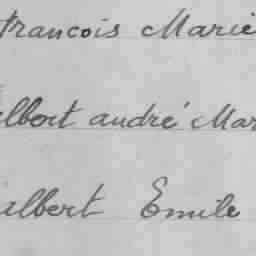 Francois Marie
albert andré Mar
albert Emile